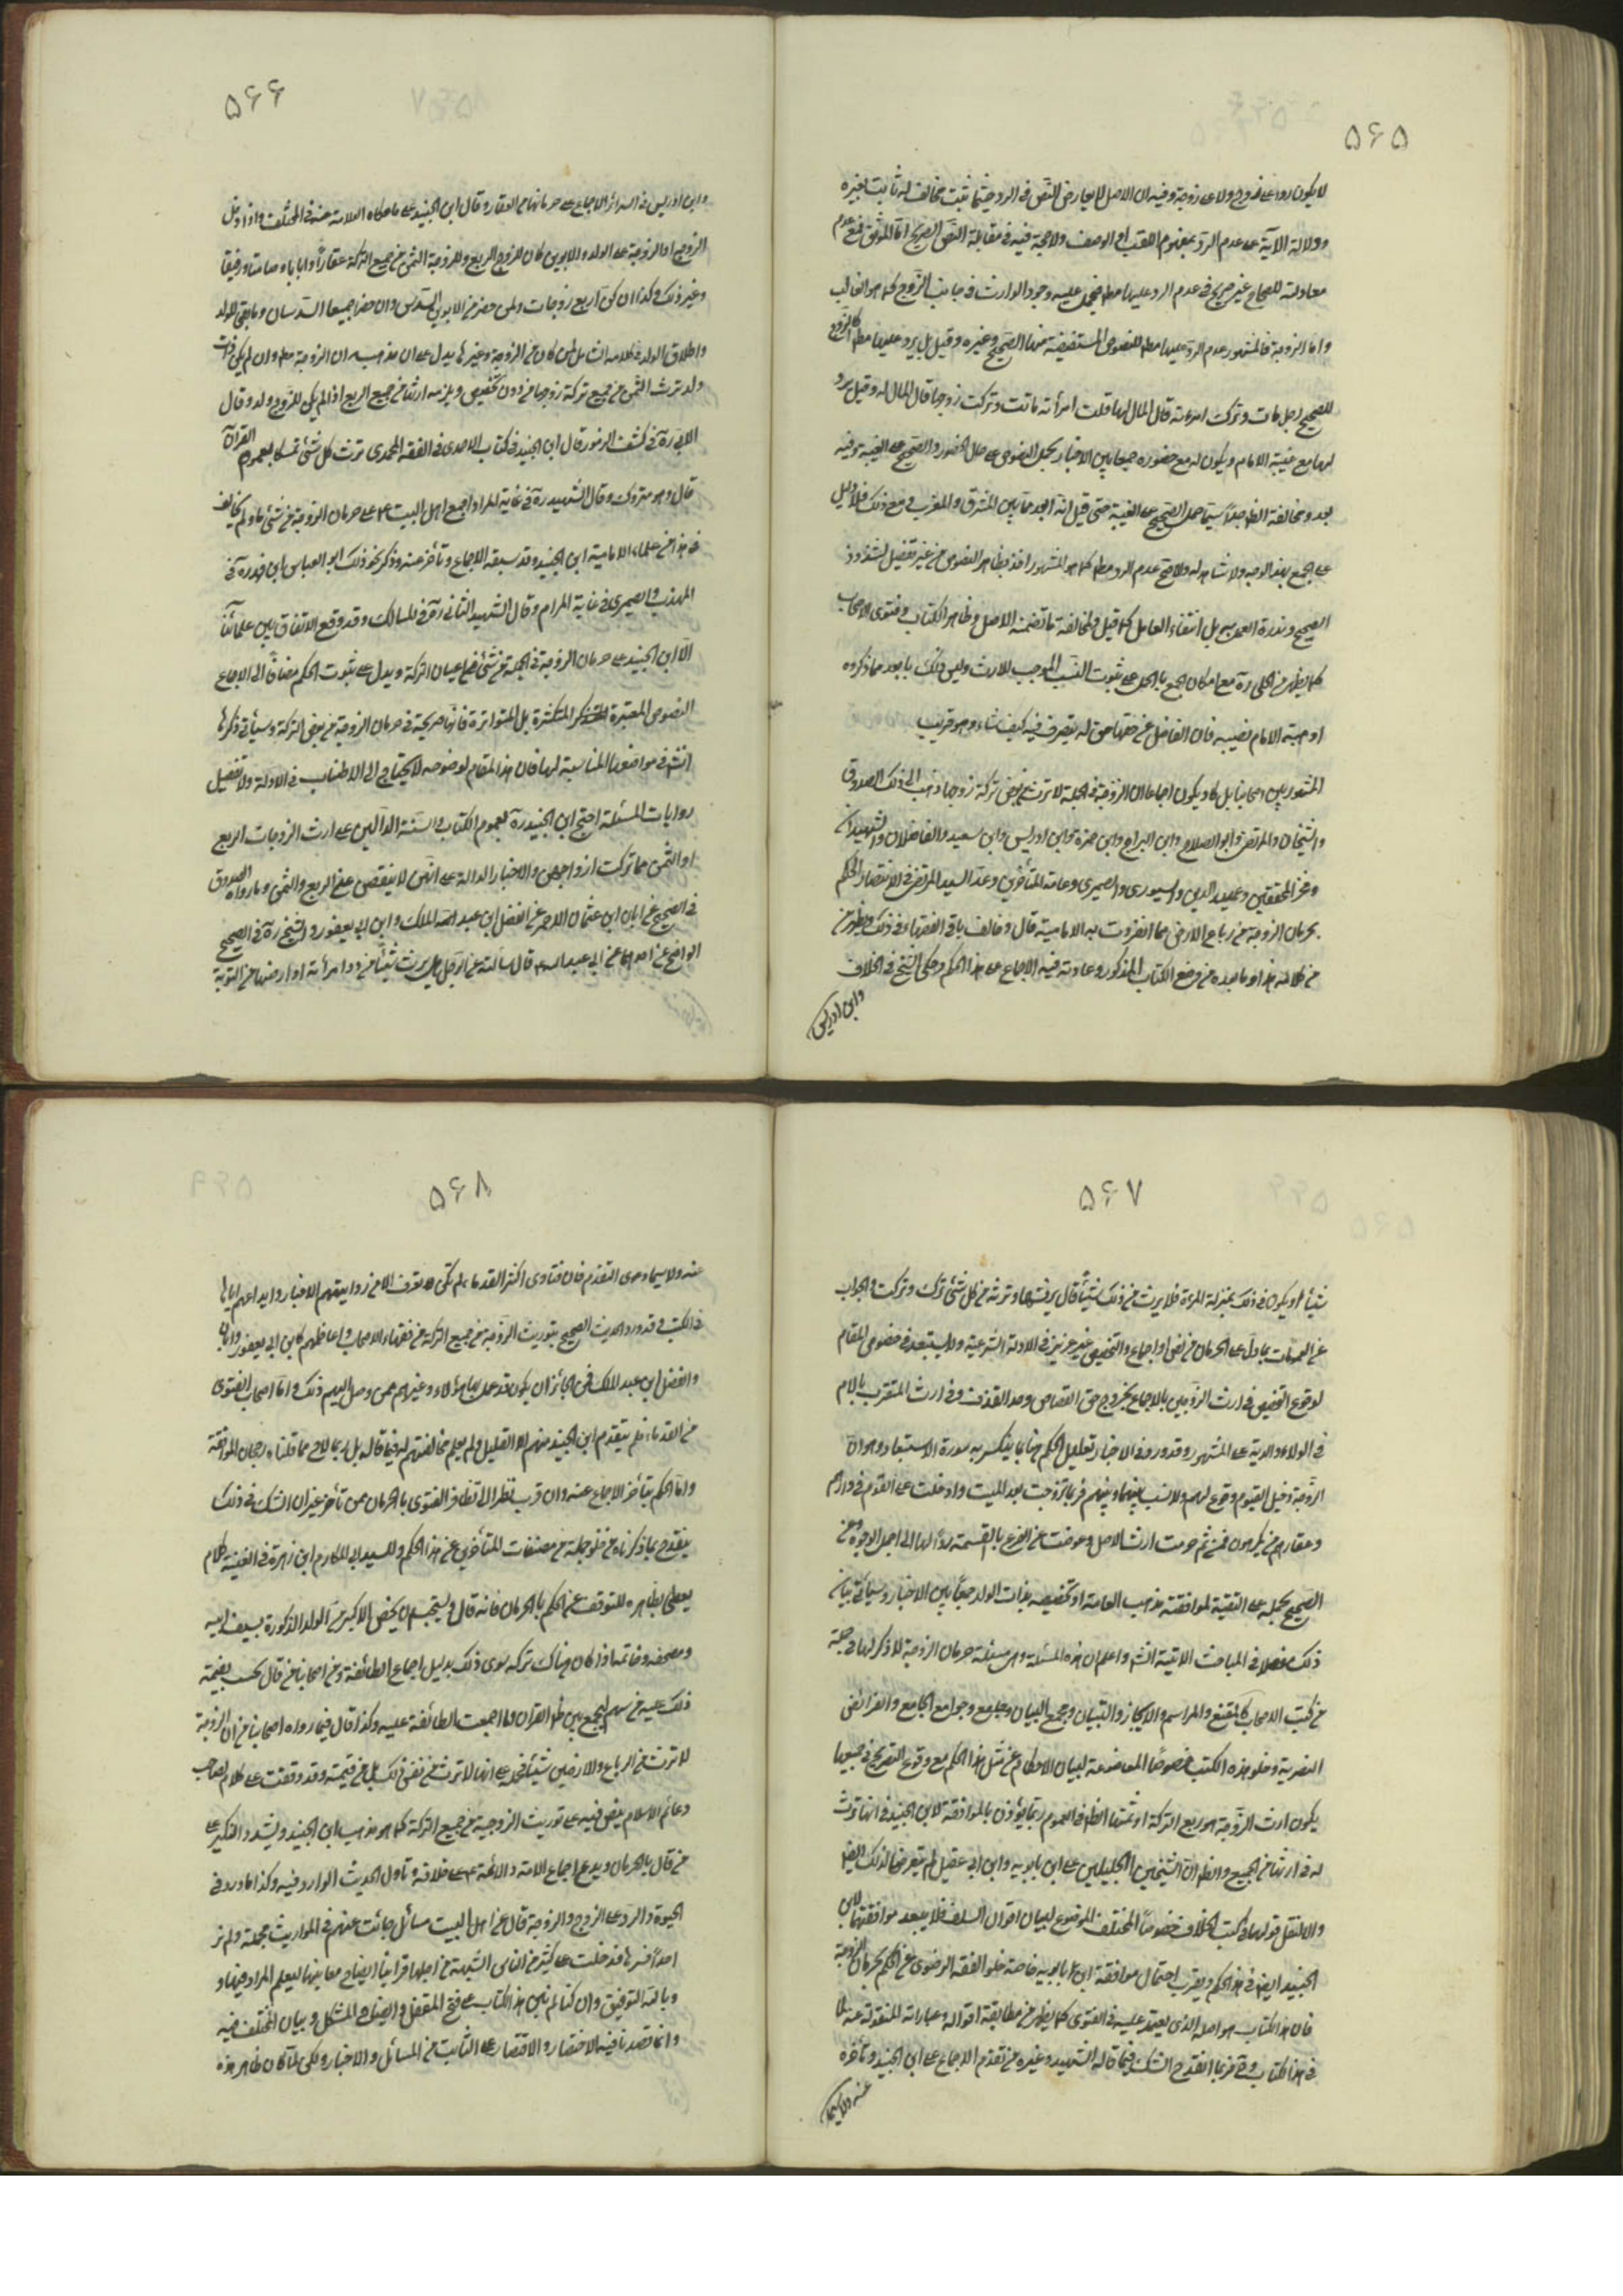 ۵۶۵
لا يكون ردا على زوج ولا على زوجة وفيه ان الاصل لا يعارض النص في الرد حيثما ثبت مخالف له ثابت بغيره
ودلالة الآية على عدم الرد بمفهوم اللقب او الوصف ولا حجة فيه في مقابلة النص الصريح اما الموثق فمع عدم
معادلته للصحاح غير صريح في عدم الرد عليها مطلقا فيحمل عليه وجود الوارث في جانب الزوج كما هو الغالب
واما الزوجة فالمشهور عدم الرد عليها مطلقا للنصوص المستفيضة منها الصحيح وغيره وقيل بل يرد عليها مطلقا كالزوج
للصحيح رجل مات وترك امرءته قال المال لها قلت امرأته ماتت وتركت زوجها قال المال له وقيل يرد
لها مع غيبة الامام ويكون له مع حضوره جمعا بين الاخبار بحمل النصوص على حال الحضور والصحيح على الغيبة وفيه
بعد ومخالفة الظاهر جدا سيما حمل الصحيح على الغيبة حتى قيل انه ابعد مما بين المشرق والمغرب ومع ذلك فلا دليل
على الجمع بهذا الوجه ولا شاهد له والاصح عدم الرد مطلقا كما هو المشهور اخذا بظاهر النصوص من غير تفصيل لشذوذ
الصحيح وندرة العمل به بل انتفاء العامل كما قيل ومخالفته ما تضمنه الاصل وظاهر الكتاب وفتوى الاصحاب
كما يظهر من الحلي ره مع امكان الجمع بالحمل على ثبوت النسب الموجب للارث وليس ذلك بابعد مما ذكروه
او هبة الامام نصيبه فان الفاضل عن حقها حق له يتصرف فيه كيف شاء وهو قريب
المشهور بين اصحابنا بل كاد يكون اجماعا ان الزوجة في الجملة لا ترث من بعض تركة زوجها ذهب الى ذلك الصدوق
والشيخان والمرتضى وابو الصلاح وابن البراج وابن حمزة وابن ادريس وابن سعيد والفاضلان والشهيدان
وفخر المحققين وعميد الدين والسيوري والصيمري وعامة المتأخرين وعد السيد المرتضى في الانتصار الحكم
بحرمان الزوجة من رباع الارض مما انفردت به الامامية قال وخالف باقي الفقهاء في ذلك ويظهر من
من كلامه هذا وما بعده من وضع الكتاب المذكور وعادته فيه الاجماع على هذا الحكم وحكى الشيخ في الخلاف
وابن ادريس
۵۶۶
وابن ادريس في السرائر الاجماع على حرمانها من العقار وقال ابن الجنيد على ما حكاه العلامة عنه في المختلف واذا دخل
الزوج او الزوجة على الولد والابوين كان للزوج الربع وللزوجة الثمن من جميع التركة عقارا او اثاثا وصامتا ورقيقا
وغير ذلك وكذا ان كن اربع زوجات ولمن حضر من الابوين السدس وان حضرا جميعا السدسان وما بقي للولد
واطلاق الولد في كلامه الشامل لمن كان من الزوجة وغيرها يدل على ان مذهبه ان الزوجة مطلقا وان لم يكن ذات
ولد ترث الثمن من جميع تركة زوجها من دون تخصيص ويلزمه ارثها من جميع الربع اذا لم يكن للزوج ولد وقال
الآبي ره في كشف الرموز قال ابن الجنيد في كتاب الاحمدي في الفقه المحمدي ترث كل شئ تمسكا بعموم القرآن
قال وهو متروك وقال الشهيد ره في غاية المراد اجمع اهل البيت ع على حرمان الزوجة من شئ ما ولم يخالف
في هذا من علماء الامامية ابن الجنيد وقد سبقه الاجماع وتأخر عنه وذكر نحو ذلك ابو العباس ابن فهد ره في
المهذب والصيمري في غاية المرام وقال الشهيد الثاني ره في المسالك وقد وقع الاتفاق بين علمائنا
الا ابن الجنيد على حرمان الزوجة في الجملة من شئ من اعيان التركة ويدل على ثبوت الحكم مضافا الى الاجماع
النصوص المعتبرة المتكثرة بل المتواترة فانها صريحة في حرمان الزوجة من بعض التركة وسيأتي ذكرها
انشاء في مواضعها المناسبة لها فان هذا المقام لوضوحه لا يحتاج الى الاطناب في الادلة ولا تفصيل
روايات المسئلة احتج ابن الجنيد ره بعموم الكتاب والسنة الدالين على ارث الزوجات الربع
او الثمن مما تركت ازواجهن والاخبار الدالة على انهن لا ينقصن عن الربع والثمن وما رواه الصدوق
في الصحيح عن ابان ابن عثمان الاحمر عن الفضل ابن عبد الملك وابن ابي يعفور والشيخ ره في الصحيح
الواضح عن احدهما عن ابي عبد الله ع قال سألته عن الرجل هل يرث شيئا من دار امرأته او ارضها من التربة
۵۶۷
شيئا او يكون في ذلك بمنزلة المرءة فلا يرث من ذلك شيئا قال يرثها وترثه من كل شئ ترك وتركت والجواب
عن العمومات بما دل على الحرمان من نص او اجماع والتخصيص غير عزيز في الادلة الشرعية ولا يستبعد في خصوص المقام
لوقوع التخصيص في ارث الزوجين بالاجماع بخروج حق القصاص وحد القذف وفي ارث المتقرب بالام
في الولاء والدية على المشهور وقد ورد في الاخبار تعليل الحكم هنا بما ينكسر به سورة الاستبعاد وهو ان
الزوجة دخيل القيوم وقوع لهم ولا نسب بينها وبينهم فربما تزوجت بعد الميت وادخلت على القوم في دارهم
وعقارهم من يكرهون فمن ثم حرمت ارث الاصل وعوضت عن الفرع بالقسمة ردا لها الى اجمل الوجوه وعن
الصحيح بحمله على التقية لموافقته مذهب العامة او تخصيصه بذات الولد جمعا بين الاخبار وسيأتي بيان
ذلك مفصلا في المباحث الآتية انشاء واعلم ان هذه المسئلة وهي مسئلة حرمان الزوجة لا ذكر لها في جملة
من كتب الاصحاب كالمقنع والمراسم والايجاز والتبيان ومجمع البيان وجوامع الجامع والفرائض
النصرية وخلو هذه الكتب خصوصا الموضوعة لبيان الاحكام عن مثل هذا الحكم مع وقوع التصريح في جميعها
يكون ارث الزوجة هو ربع التركة او ثمنها الظاهر في العموم ربما يؤذن بالموافقة لابن الجنيد في انها ترث
له في ارثها من الجميع والظاهر ان الشيخين الجليلين علي ابن بابويه وابن ابي عقيل لم يتعرضا لذلك ايضا
والا لنقل قولهما في كتب الخلاف خصوصا المختلف الموضوع لبيان اقوال السلف فلا يبعد موافقتهما لابن
الجنيد ايضا في هذا الحكم ويقرب احتمال موافقة ابن بابويه خاصة خلو الفقه الرضوي عن الحكم بحرمان الزوجة
فان هذا الكتاب هو اصله الذي يعتمد عليه في الفتوى كما يظهر من مطابقة اقواله وعباراته المنقولة عنه لما
في هذا الكتاب وح فربما انقدح الشك فيما قاله الشهيد وغيره من تقدم الاجماع على ابن الجنيد وتأخره
عنه ولا سيما
۵۶۸
عنه ولا سيما دعوى التقدم فان فتاوى اكثر القدماء لم تكن تعرف الا من روايتهم الاخبار وايداعهم اياها
في الكتب وقد ورد الحديث الصحيح بتوريث الزوجة من جميع التركة من فقهاء الاصحاب واعاظمهم كابن ابي يعفور وابان
والفضل ابن عبد الملك فمن الجائز ان يكون قد عمل بها هؤلاء وغيرهم ممن وصل اليهم ذلك واما اصحاب الفتوى
من القدماء فلم يتقدم ابن الجنيد منهم الا القليل ولم يعلم مخالفتهم له فيما قاله بل ربما لاح مما قلناه رجحان الموافقة
واما الحكم بتأخر الاجماع عنه وان قرب نظرا الى تظافر الفتوى بالحرمان ممن تأخر غير ان الشك في ذلك
ينقدح بما ذكرناه من خلو جملة من مصنفات المتأخرين عن هذا الحكم وللسيد ابي المكارم ابن زهرة في الغنية كلام
يعطي بظاهره للتوقف عن الحكم بالحرمان فانه قال ويستحب ان يخص الاكبر من الولد الذكورة بسيف ابيه
ومصحفه وخاتمه اذا كان هناك تركة سوى ذلك بدليل اجماع الطائفة ومن اصحابنا من قال يحسب بقيمة
ذلك عليه من سهمه ليجمع بين ظاهر القران وما اجمعت الطائفة عليه وكذا قال فيما رواه اصحابنا من ان الزوجة
لا ترث من الرباع والارضين شيئا فحمله على انها لا ترث من نفس ذلك بل من قيمته وقد وقفت على كلام لصاحب
دعائم الاسلام ينص فيه على توريث الزوجة من جميع التركة كما هو مذهب ابن الجنيد ويشدد النكير على
من قال بالحرمان ويدعي اجماع الامة والائمة ع على خلافه وتأول الحديث الوارد فيه وكذا ما ورد في
الحبوة والرد على الزوج والزوجة قال عن اهل البيت مسائل جائت عنهم في المواريث مجملة ولم نر
احدا فسرها فدخلت على كثير من الناس الشبهة من اجلها فرأينا ايضاح معانيها ليعلم المراد فيها و
وبالله التوفيق وان كنا لم نبن هذا الكتاب على فتح المقفل وايضاح المشكل وبيان المختلف فيه
وانما قصدنا فيه الاختصار والاقتصار على الثابت من المسائل والاخبار ولكن لما كان ظاهر هذه